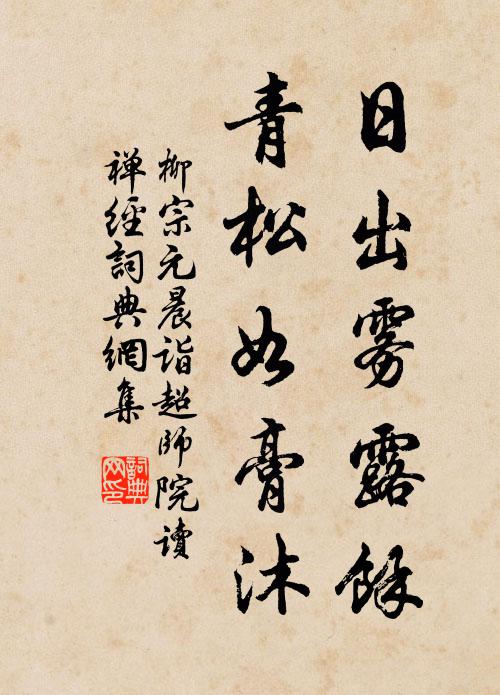 日出雾露餘
青松如膏沐
柳宗元晨诣超师院读
禅经词典網集
詞典網印